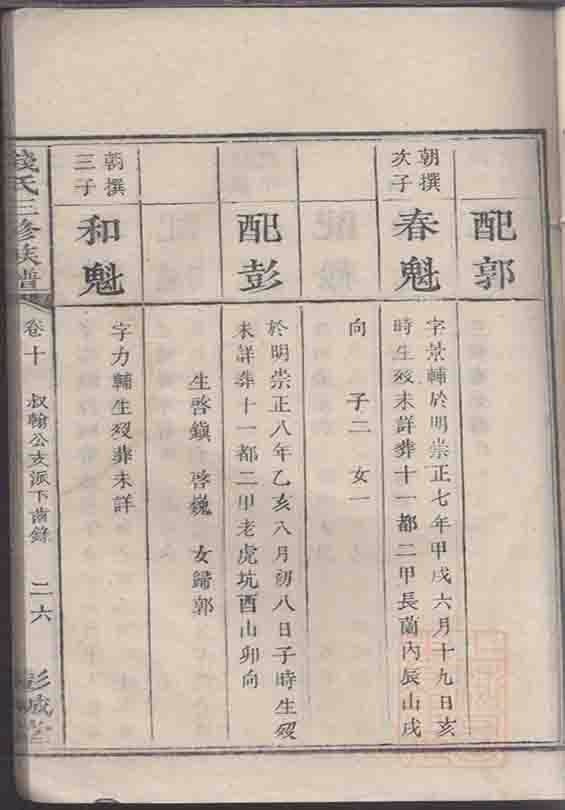 配郭
朝撰
次子
春魁
字景輔於明崇正七年甲戌六月十九日亥
時生殁未詳葬十一都二甲長蘭內辰山戌
向 子二 女一
配彭
於明崇正八年乙亥八月初八日子時生殁
未詳葬十一都二甲老虎坑酉山卯向
生啓鎮 啓巍 女歸郭
朝撰
三子
和魁
字力輔生殁葬未詳
錢氏三修族譜
卷十
叔翰公支派下齒錄
二六
彭城堂